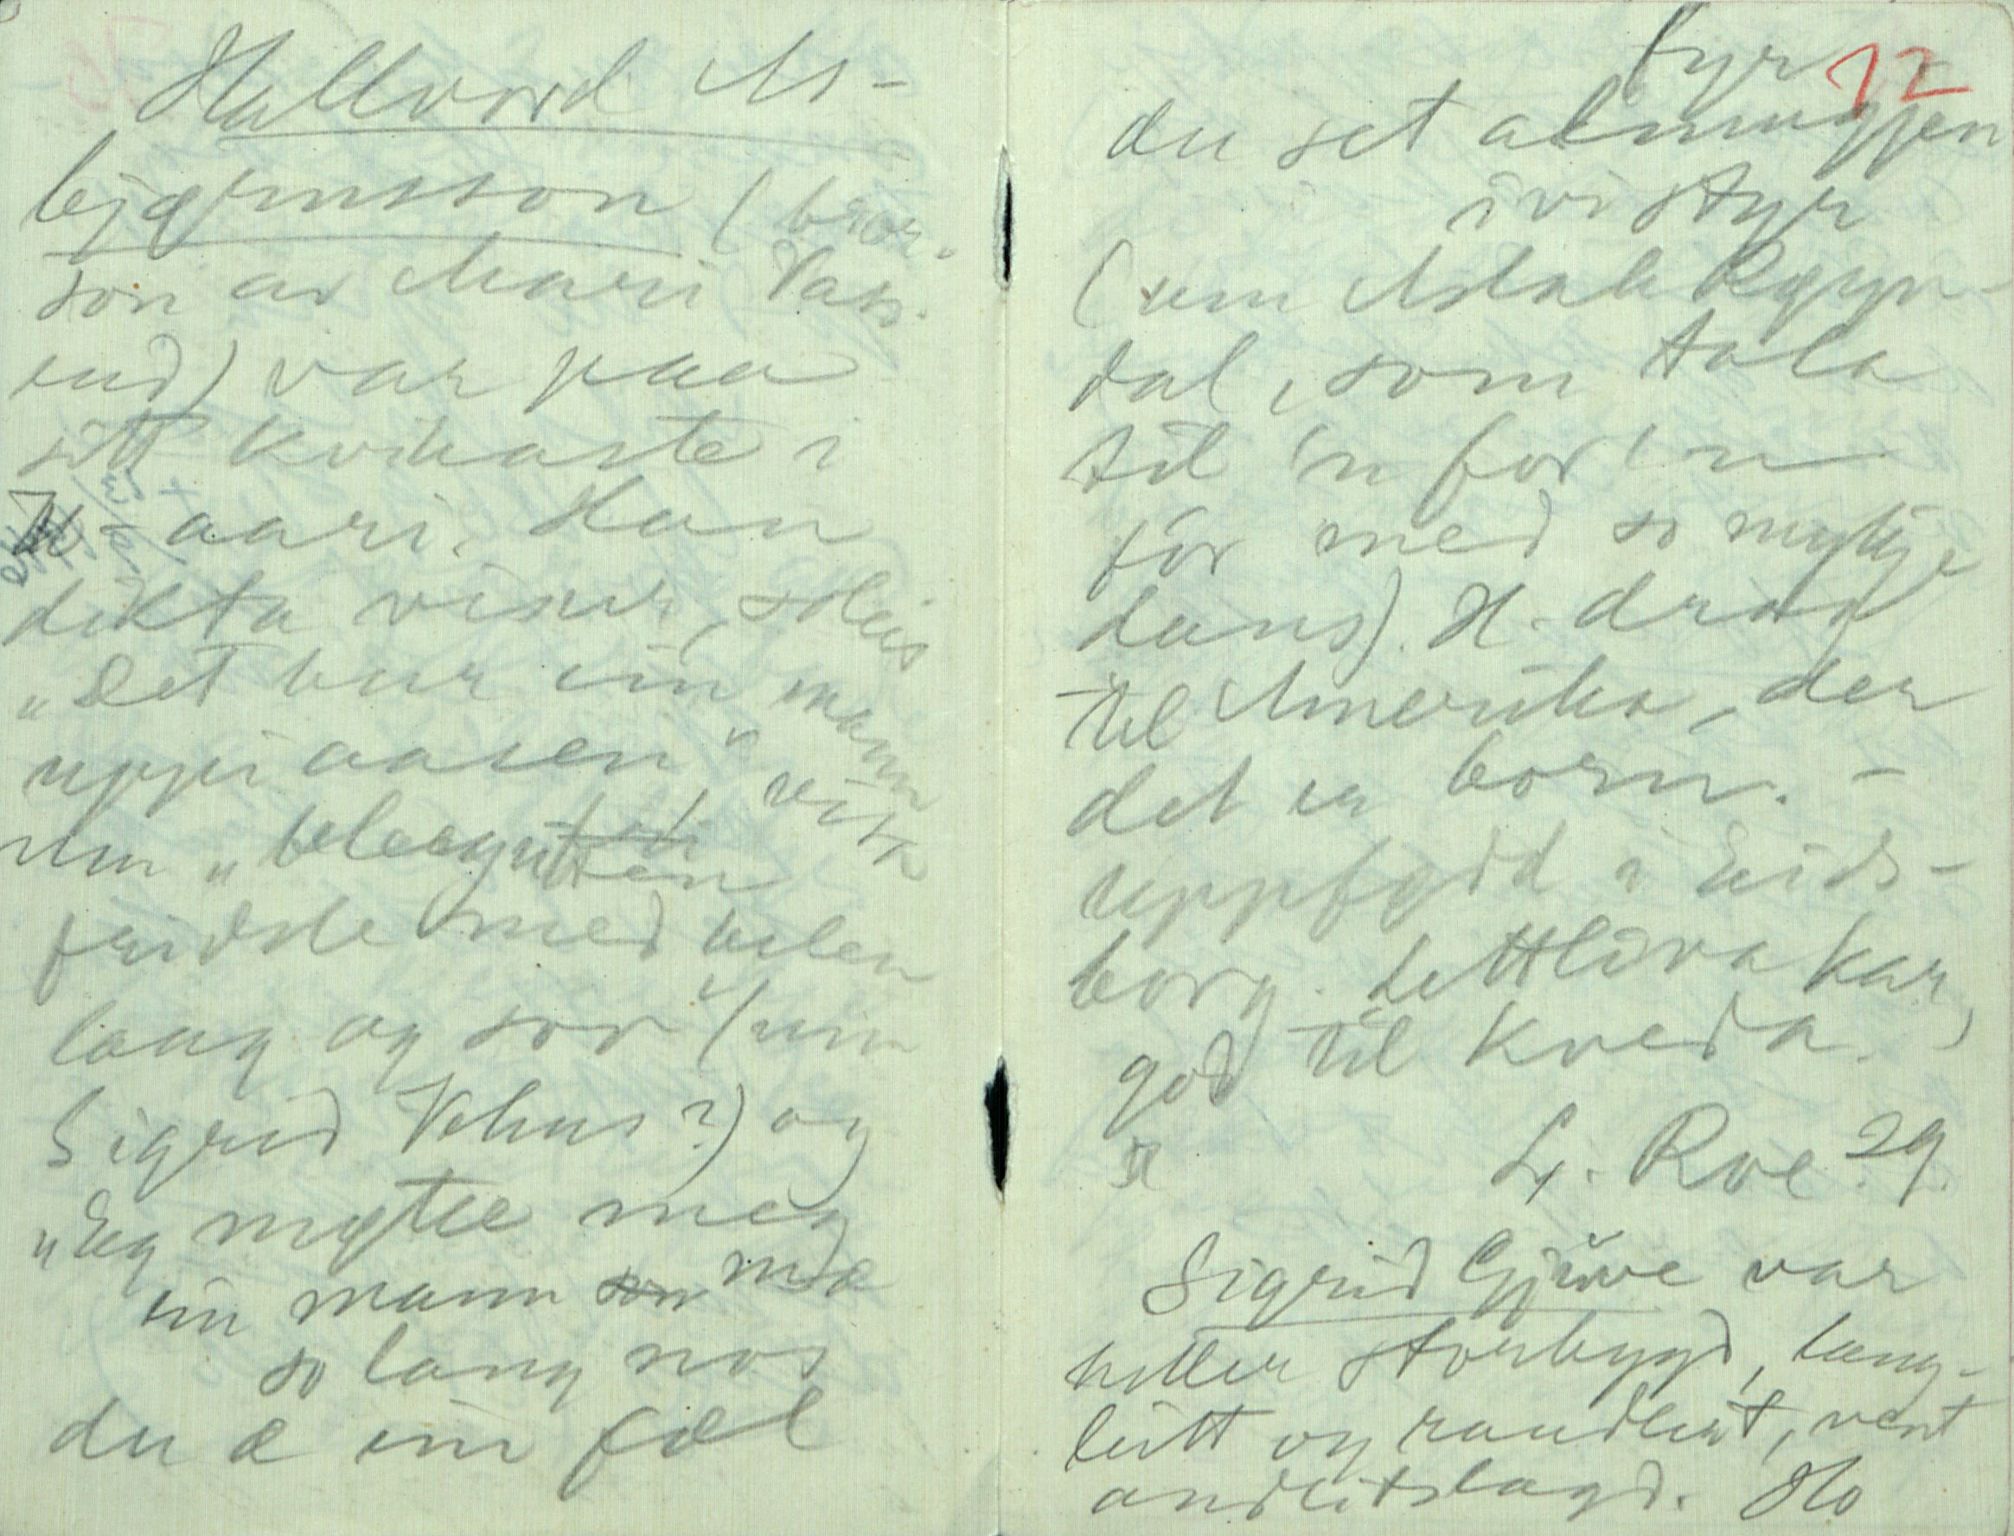 Hallvord As-
bjørnsson (bror-
son av Mari Vass-
end) var paa
sitt kvikaste i
7- aari. Han
dikta viser, soleis
"Det bur ein mann
uppi aasen" visa
um "belaagutten
fridde med belen
lang og sov" (um
Sigrid Vehus?) og
"Eg møtte meg
ein mann mæ
so lang nos
du æ ein fæl
fyr
12
du set almugjen
ivi styr
(um Aslak Røyn-
dal, som tala
til 'n for 'n
fór med so mykje
dans). H. drog
til Amerika, der
det er born. -
uppfødd i Eids-
borg. Lettliva kar,
god til kveda.
L. Roe. 29.
Sigrid Gjuve var
heller storbygd, lang-
leitt og raudleitt, vent
andlitslagd. Ho